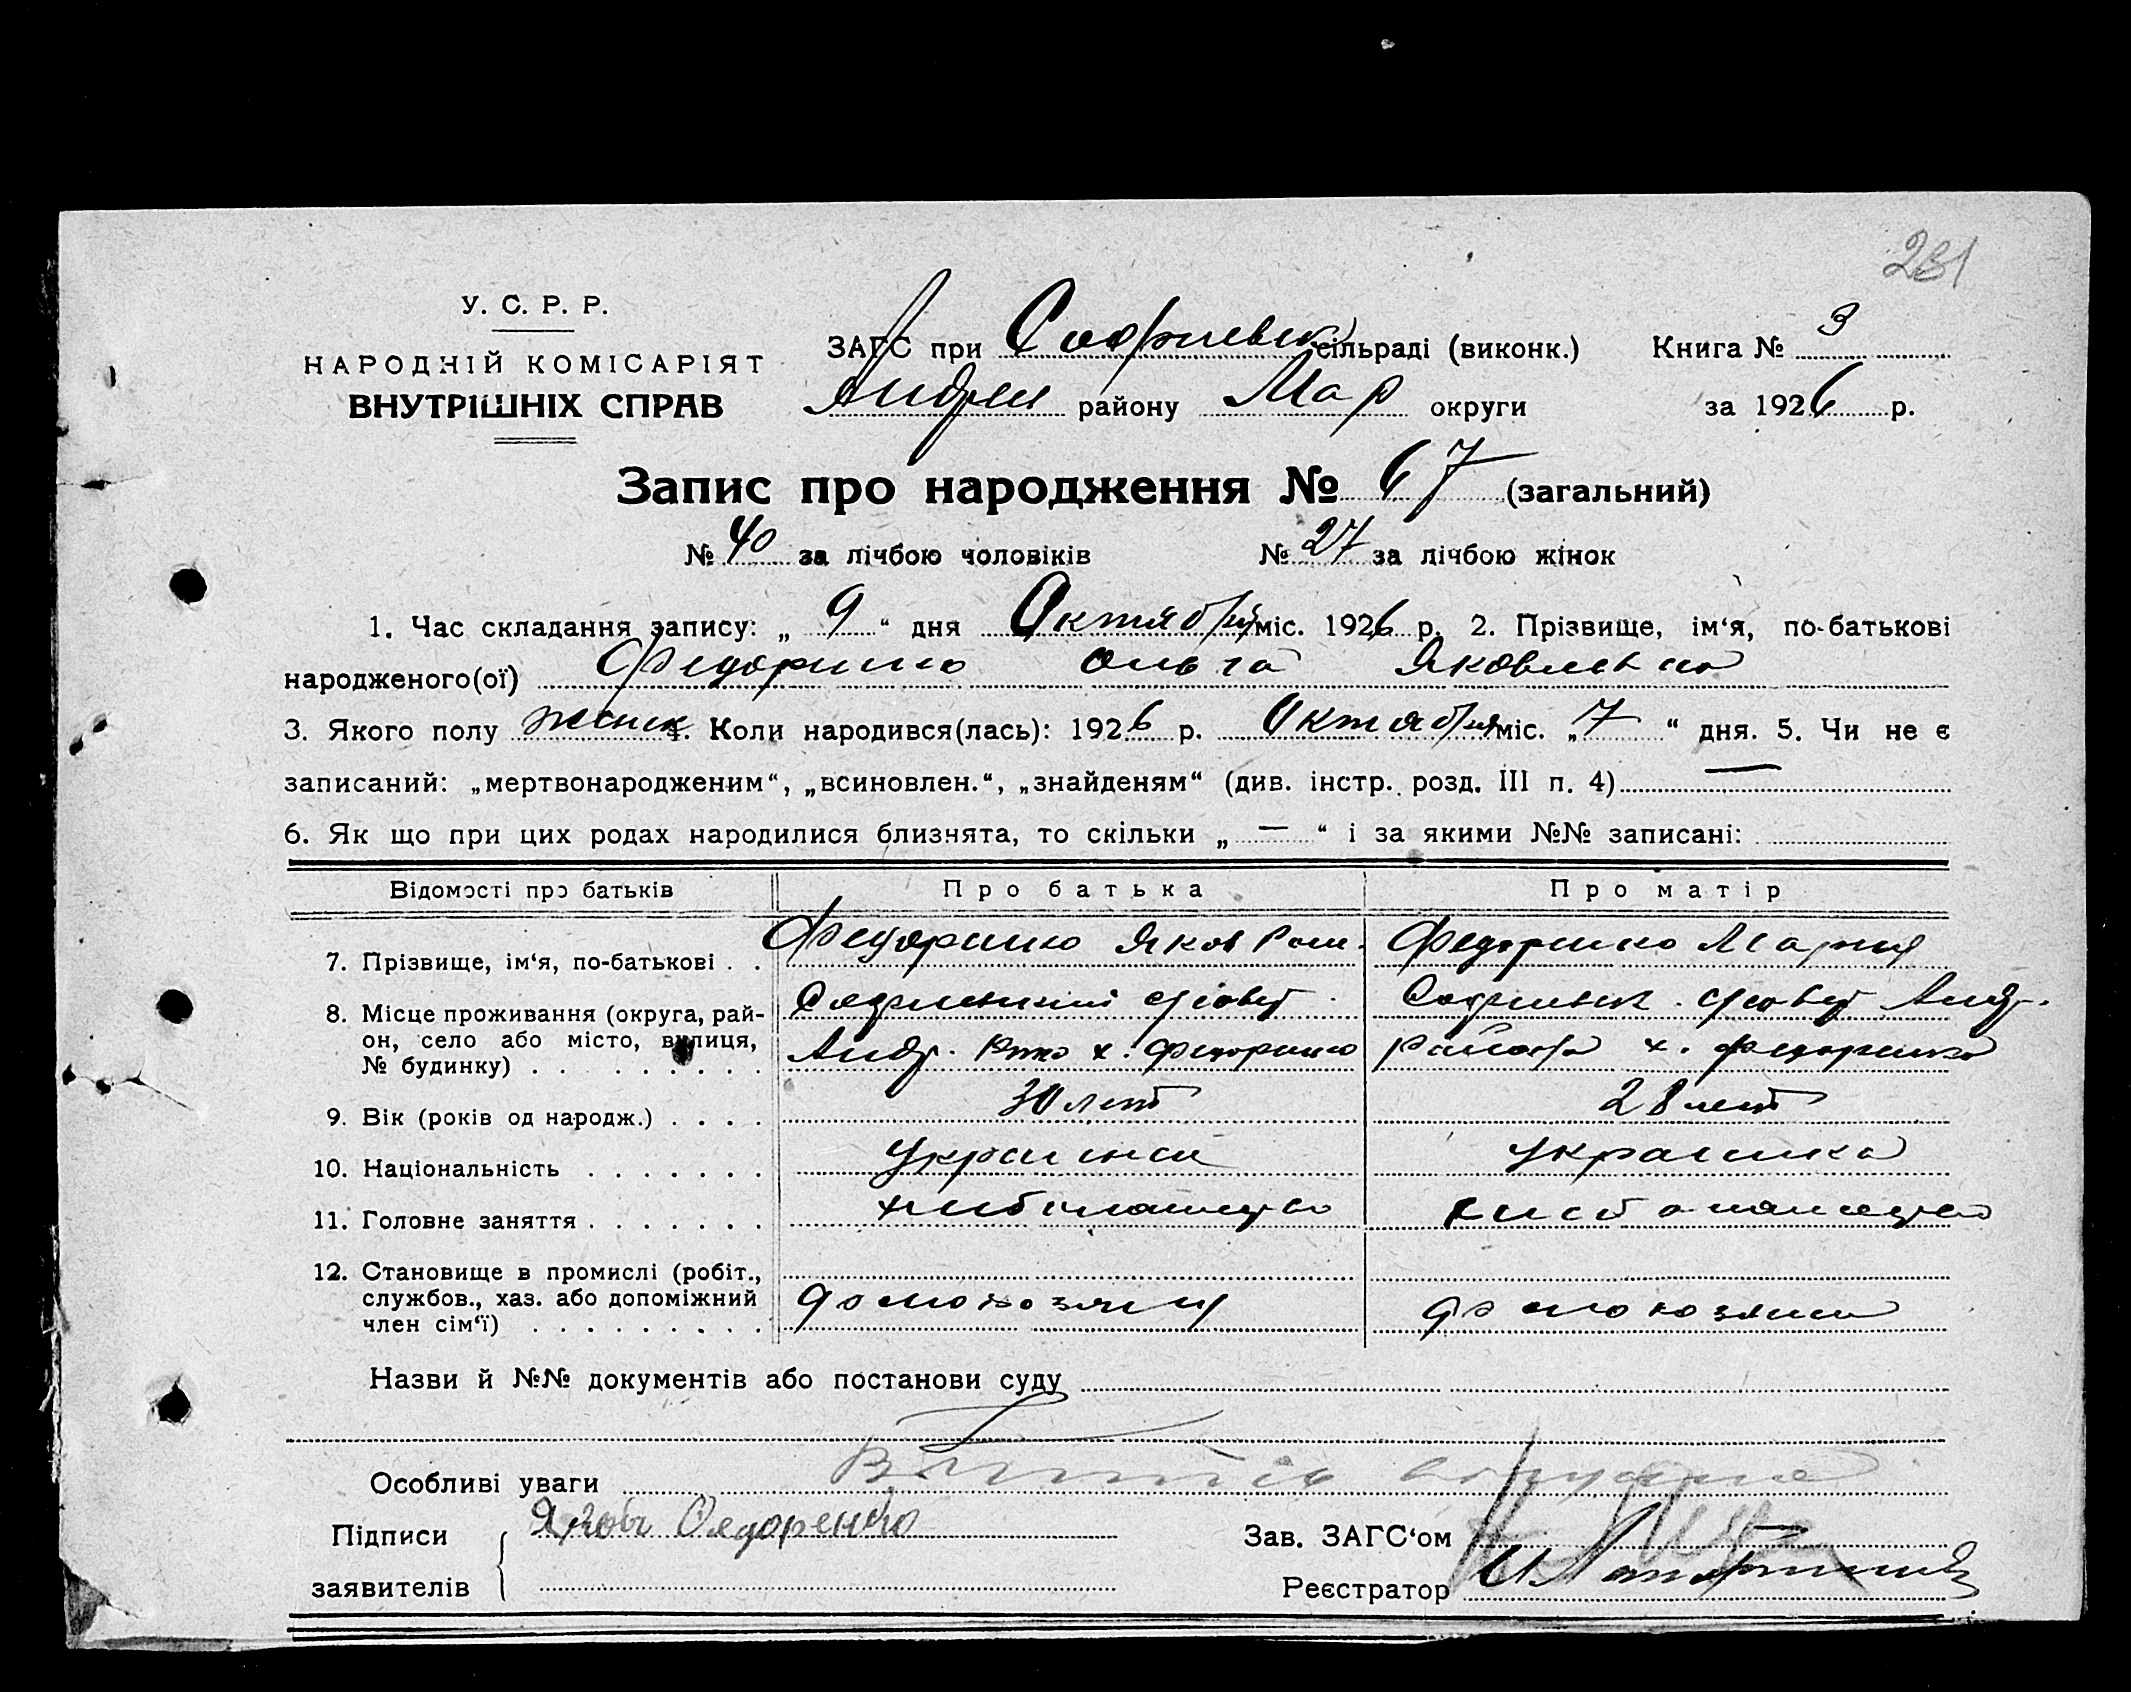 231
У. С. Р. Р.
НАРОДНІЙ КОМІСАРІЯТ
ВНУТРІШНІХ СПРАВ
ЗАГС при Софиевск сільраді (виконк.) Книга № 3
Андре району Мар округи за 1926 р.
Запис про народження № 67 (загальний)
№ 40 за лічбою чоловіків № 27 за лічбою жінок
1. Час складання запису: „ 9 “ дня Октября міс. 1926 р. 2. Прізвище, ім‘я, по-батькові
народженого(ої) Федоренко Ольга Яковлевна
3. Якого полу женск 4. Коли народився(лась): 1926 р. Октября міс. „ 7 “ дня. 5. Чи не є
записаний: „мертвонародженим“, „всиновлен.“, „знайденям“ (див. інстр. розд. III п. 4) —
6. Як що при цих родах народилися близнята, то скільки „ — “ і за якими №№ записані:
Відомості про батьків Про батька Про матір
7. Прізвище, ім‘я, по-батькові . . Федоренко Яков Ром. Федоренко Мария
8. Місце проживання (округа, рай-
он, село або місто, вулиця,
№ будинку) . . . . . . . .
Андр. х. Федоренко Района х. Федоренко
9. Вік (років од народж.) . . . . 30 лет 28 лет
10. Національність . . . . . . . украинец украинка
11. Головне заняття . . . . . . . хлебопашество хлебопашество
12. Становище в промислі (робіт.,
службов., хаз. або допоміжний
член сім‘ї) . . . . . . . . . домохозяин домохозяйка
Назви й №№ документів або постанови суду
Особливі уваги
Підписи Яков Федоренко Зав. ЗАГС‘ом
заявителів Реєстратор